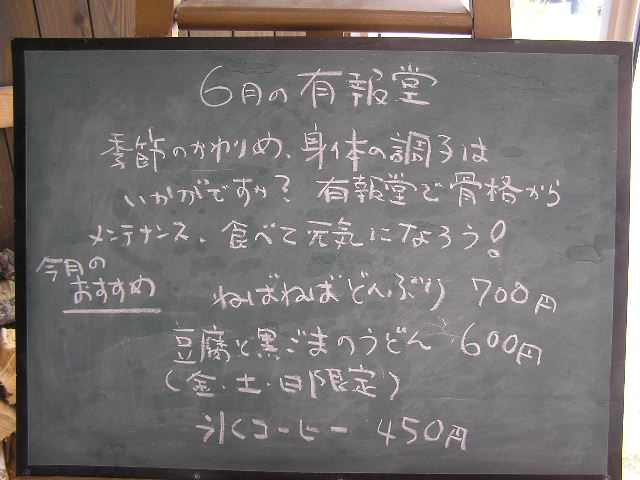 6月の有報堂
季節のかわりめ、身体の調子は
いかがですか? 有報堂で骨格から
メンテナンス、食べて元気になろう!
今月の
おすすめ
ねばねばどんぶり 700円
豆腐と黒ごまのうどん 600円
(金・土・日限定)
氷コーヒー 450円